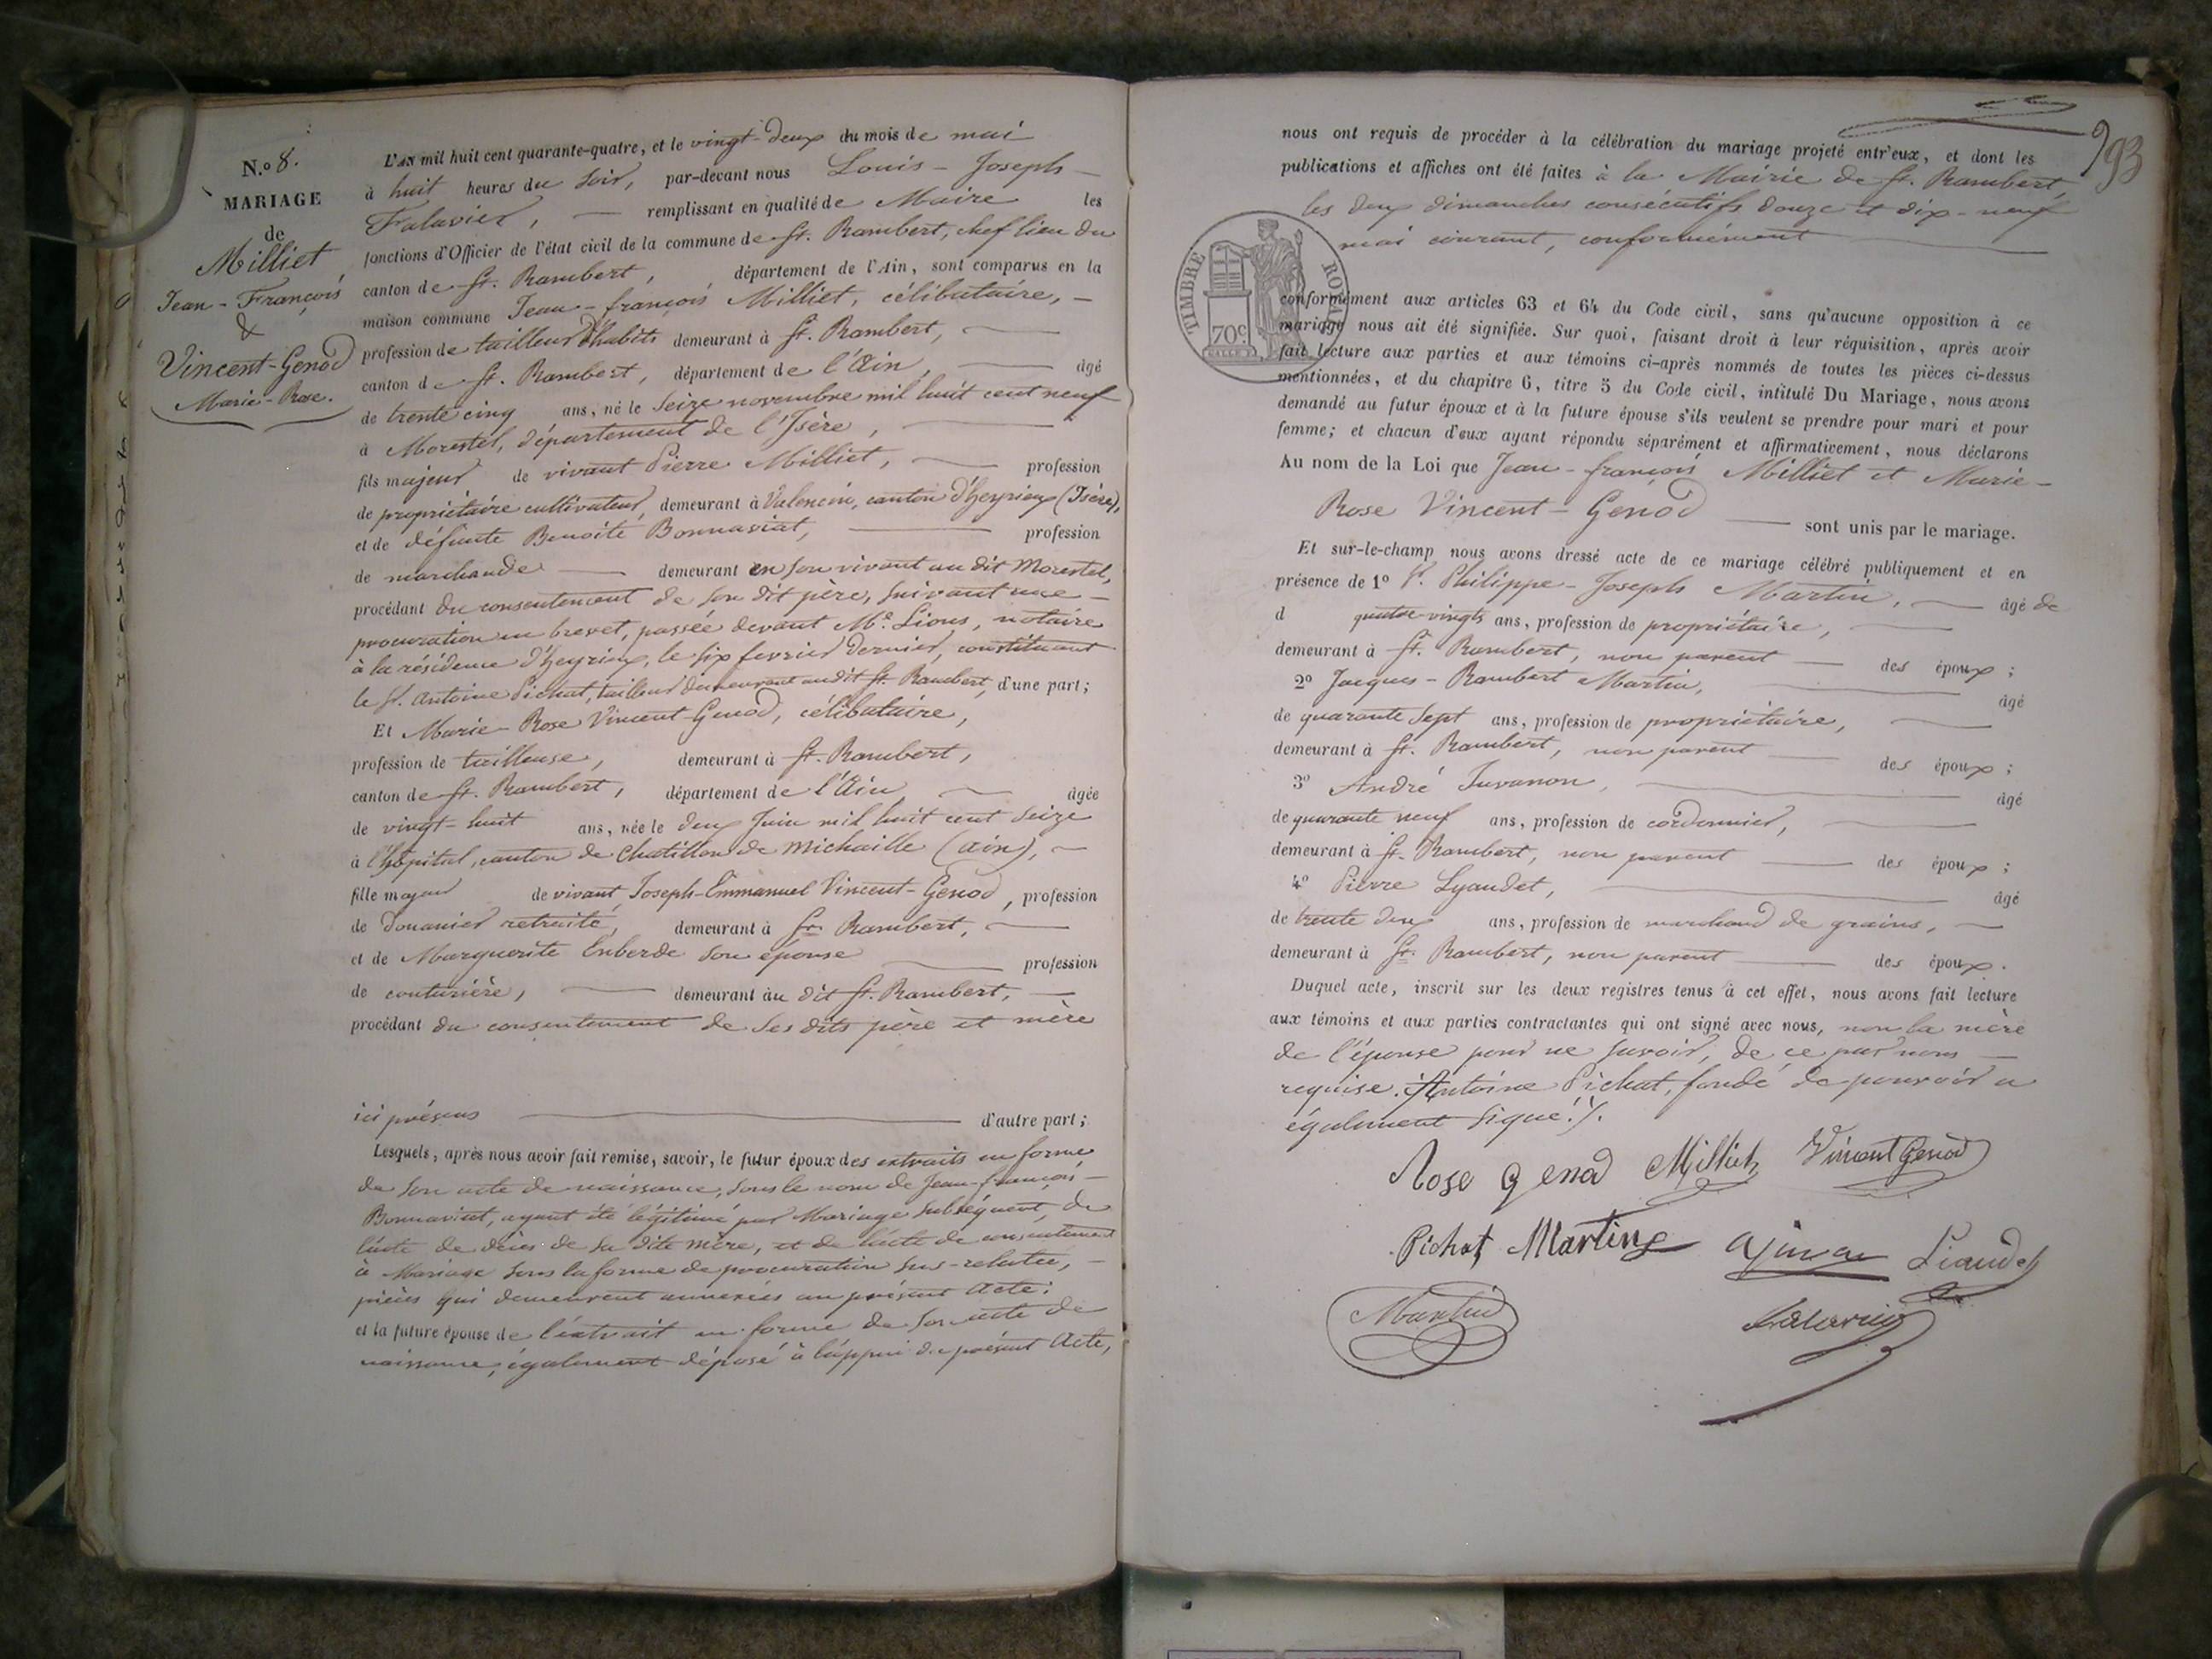 N.o 8.
MARIAGE
de
Milliet
Jean-François
&
Vincent-Genod
Marie-Rose.
L'AN mil huit cent quarante-quatre, et le vingt-deux du mois de mai
à huit heures du soir, par-devant nous Louis-Joseph-
Falavier, remplissant en qualité de Maire les
fonctions d'Officier de l'état civil de la commune de St. Rambert, chef lieu du
canton de St. Rambert, département de l'Ain, sont comparus en la
maison commune Jean-françois Milliet, célibataire,
profession de tailleur d'habits demeurant à St. Rambert,
canton de St. Rambert, département de l'Ain, âgé
de trente cinq ans, né le Seize novembre mil huit cent neuf
à Morestel, département de l'Isère,
fils majeur de vivant Pierre Milliet, profession
de propriétaire cultivateur, demeurant à Valencin, canton d'heyrieux (Isère),
et de défunte Benoîte Bonnaviat, profession
de marchande demeurant en son vivant au dit Morestel,
procédant du consentement de son dit père, suivant une
procuration en brevet, passée devant Me. Lious, notaire
à la résidence d'heyrieux, le six fevrier dernier, constituant
le Sr. Antoine Pichat, tailleur demeurant audit St. Rambert, d'une part;
Et Marie-Rose Vincent-Genod, célibataire,
profession de tailleuse, demeurant à St. Rambert,
canton de St. Rambert, département de l'Ain âgée
de vingt-huit ans, née le deux Juin mil huit cent seize
à l'hôpital, canton de Chatillon de Michaille (ain),
fille majeur de vivant Joseph-Emmanuel Vincent-Genod, profession
de Douanier retraité, demeurant à St. Rambert,
et de Marguerite Enberde son épouse profession
de couturière, demeurant àu dit St. Rambert,
procédant du consentement de ses dits père et mère
ici présens d'autre part;
Lesquels, après nous avoir fait remise, savoir, le futur époux des extraits en forme
de son acte de naissance, sous le nom de Jean-françois
Bonnaviat, ayant été légitimé par Mariage subséquent, de
l'acte de décès de sa dite mère, et de l'acte de consentement
à Mariage sous la forme de procuration sus-relatée,
pièces qui demeurent annexées au présent Acte;
et la future épouse de l'extrait en forme de son acte de
naissance, également déposé à l'appui du présent Acte,
793
nous ont requis de procéder à la célébration du mariage projeté entr'eux, et dont les
publications et affiches ont été faites à la Mairie de St. Rambert,
les deux dimanches consécutifs douze et dix-neuf
mai courant, conformément
TIMBRE ROYAL
70c.
conformément aux articles 63 et 64 du Code civil, sans qu'aucune opposition à ce
mariage nous ait été signifiée. Sur quoi, faisant droit à leur réquisition, après avoir
fait lecture aux parties et aux témoins ci-après nommés de toutes les pièces ci-dessus
mentionnées, et du chapitre 6, titre 5 du Code civil, intitulé Du Mariage, nous avons
demandé au futur époux et à la future épouse s'ils veulent se prendre pour mari et pour
femme; et chacun d'eux ayant répondu séparément et affirmativement, nous déclarons
Au nom de la Loi que Jean-françois Milliet et Marie-
Rose Vincent-Genod sont unis par le mariage.
Et sur-le-champ nous avons dressé acte de ce mariage célébré publiquement et en
présence de 1o Philippe-Joseph Martin, âgé de
d quatre-vingts ans, profession de propriétaire,
demeurant à St. Rambert, non parent des époux;
2o Jacques-Rambert Martin, âgé
de quarante sept ans, profession de propriétaire,
demeurant à St. Rambert, non parent des époux;
3o André Juvanon, âgé
de quarante neuf ans, profession de cordonnier,
demeurant à St. Rambert, non parent des époux;
4o Pierre Lyaudet, âgé
de trente deux ans, profession de marchand de grains,
demeurant à St. Rambert, non parent des époux.
Duquel acte, inscrit sur les deux registres tenus à cet effet, nous avons fait lecture
aux témoins et aux parties contractantes qui ont signé avec nous, non la mère
de l'épouse pour ne savoir, de ce par nous
requise. Antoine Pichat, fondé de pouvoir a
également signé./.
Rose genod Milliet Vincent Genod
Pichat Martin Liaudet
Martin Falavier